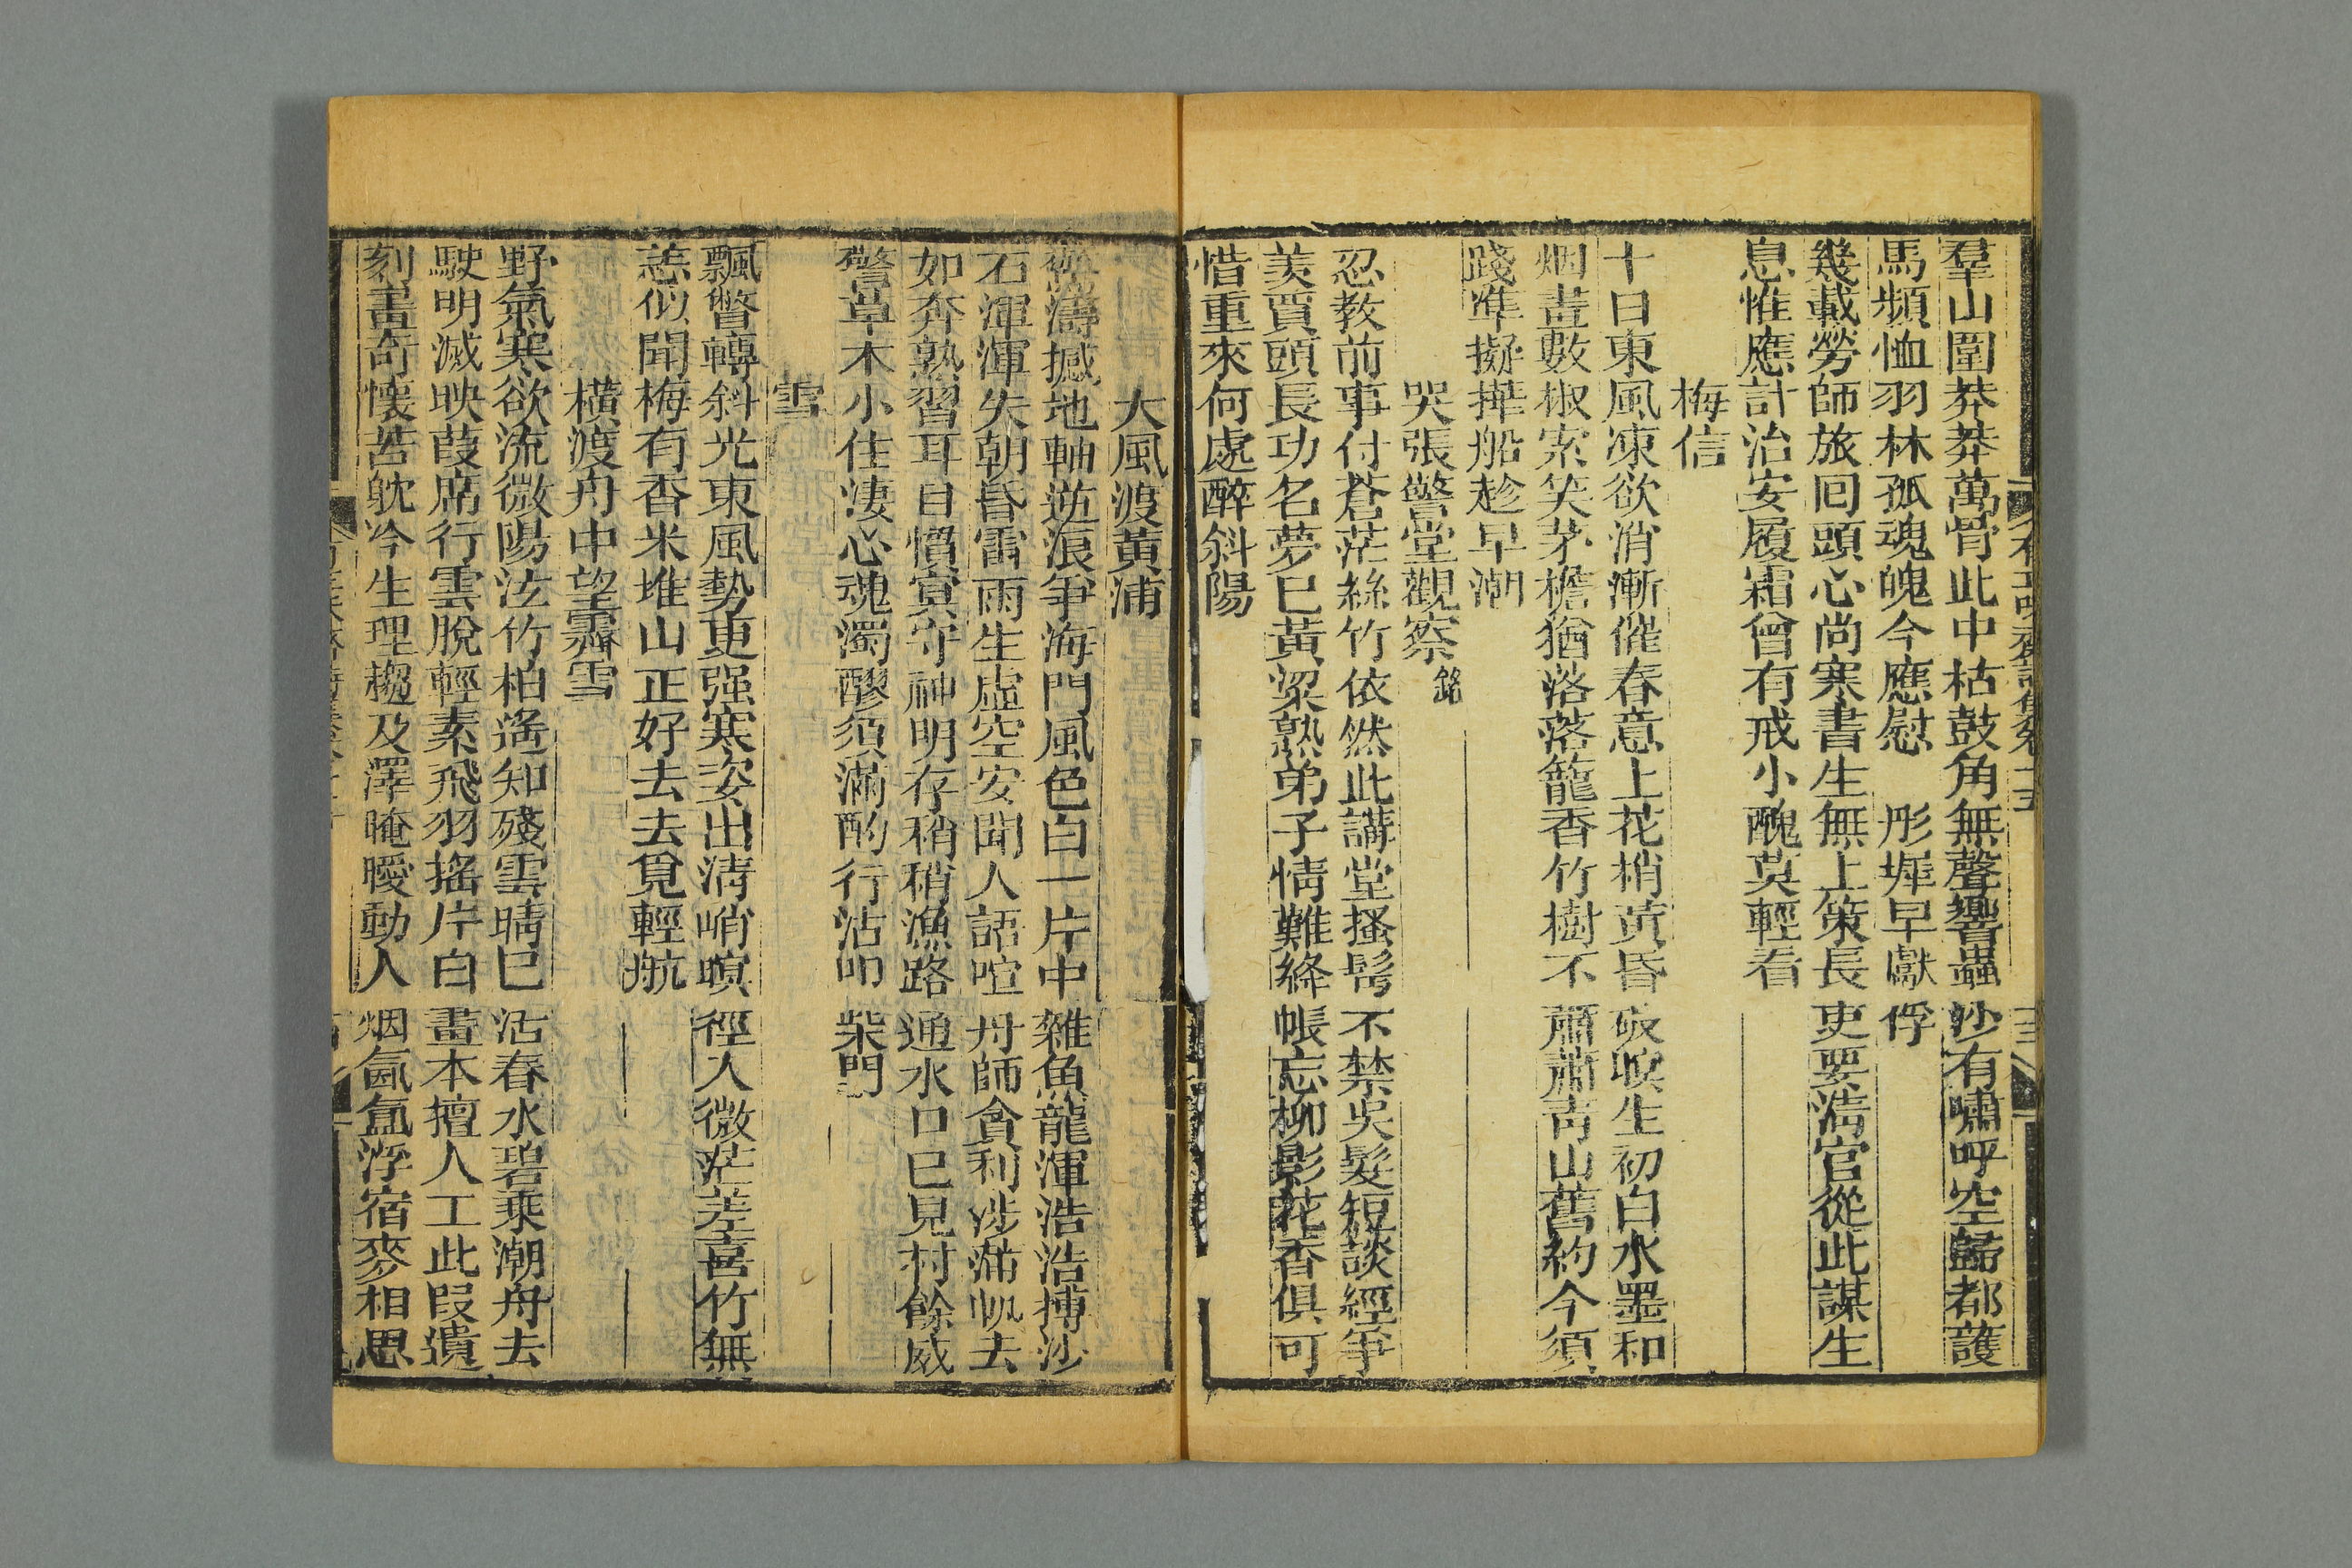 羣山圍莽莽萬骨此中枯鼓角無聲響蟲沙有嘯呼空歸都護
馬頻恤羽林孤魂魄今應慰　彤墀早獻俘
幾載勞師旅囘頭心尚寒書生無上策長吏要淸官從此謀生
息惟應計治安履霜曾有戒小醜莫輕看
梅信
十日東風凍欲消漸催春意上花梢黃昏 喚生初白水墨和
烟畫數椒索笑茅檐猶落落籠香竹樹不蕭蕭靑山舊約今須
踐準擬攆船趁早潮
哭張警堂觀察銘
忍教前事付蒼茫絲竹依然此講堂搔髩不禁吳髮短談經爭
羨賈頭長功名夢已黃粱熟弟子情難絳帳忘柳影花香俱可
惜重來何處醉斜陽
大風渡黃浦
濤撼地軸逆浪爭海門風色白一片中雜魚龍渾浩浩摶沙
石渾渾失朝昏雷雨生虛空安聞人語喧舟師貪利涉滿帆去
如奔熟習耳目慣寅守神明存稍稍漁路通水口已見村餘威
警草木小住淒心魂濁醪須滿酌行沽叩柴門
雪
飄瞥轉斜光東風勢更强寒姿出淸峭暝徑入微茫差喜竹無
恙似聞梅有香米堆山正好去去覓輕航
橫渡舟中望霽雪
野氣寒欲流微陽泫竹柏遙知殘雲晴已活春水碧乘潮舟去
駛明滅映葭席行雲脫輕素飛羽搖片白畫本擅人工此段遺
刻畫奇懷苦躭吟生理趨及澤晻曖動人烟氤氳浮宿麥相思